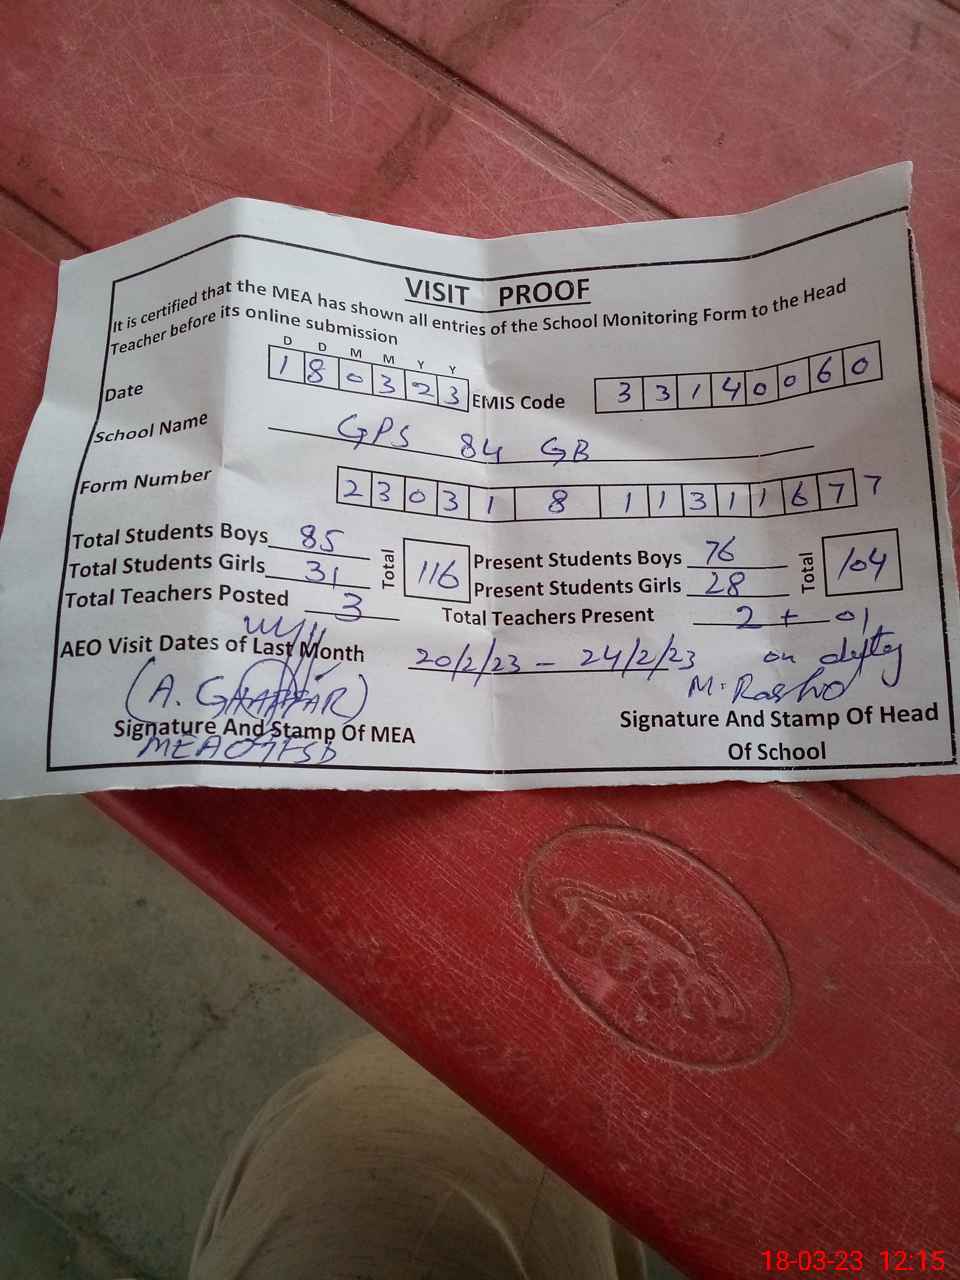 VISIT PROOF
It is certified that the MEA has shown all entries of the School Monitoring Form to the Head
Teacher before its online submission
D D M M Y Y
Date 1 8 0 3 2 3 EMIS Code 3 3 1 4 0 0 6 0
School Name GPS 84 GB
Form Number 2 3 0 3 1 8 1 1 3 1 1 6 7 7
Total Students Boys 85 Total 116 Present Students Boys 76 Total 104
Total Students Girls 31 Present Students Girls 28
Total Teachers Posted 3 Total Teachers Present 2 + 01
on
AEO Visit Dates of Last Month 20/2/23 – 24/2/23
(A. GHAFFAR) M. Rashid
Signature And Stamp Of MEA Signature And Stamp Of Head
Of School
MEA 07 FSD
18-03-23 12:15